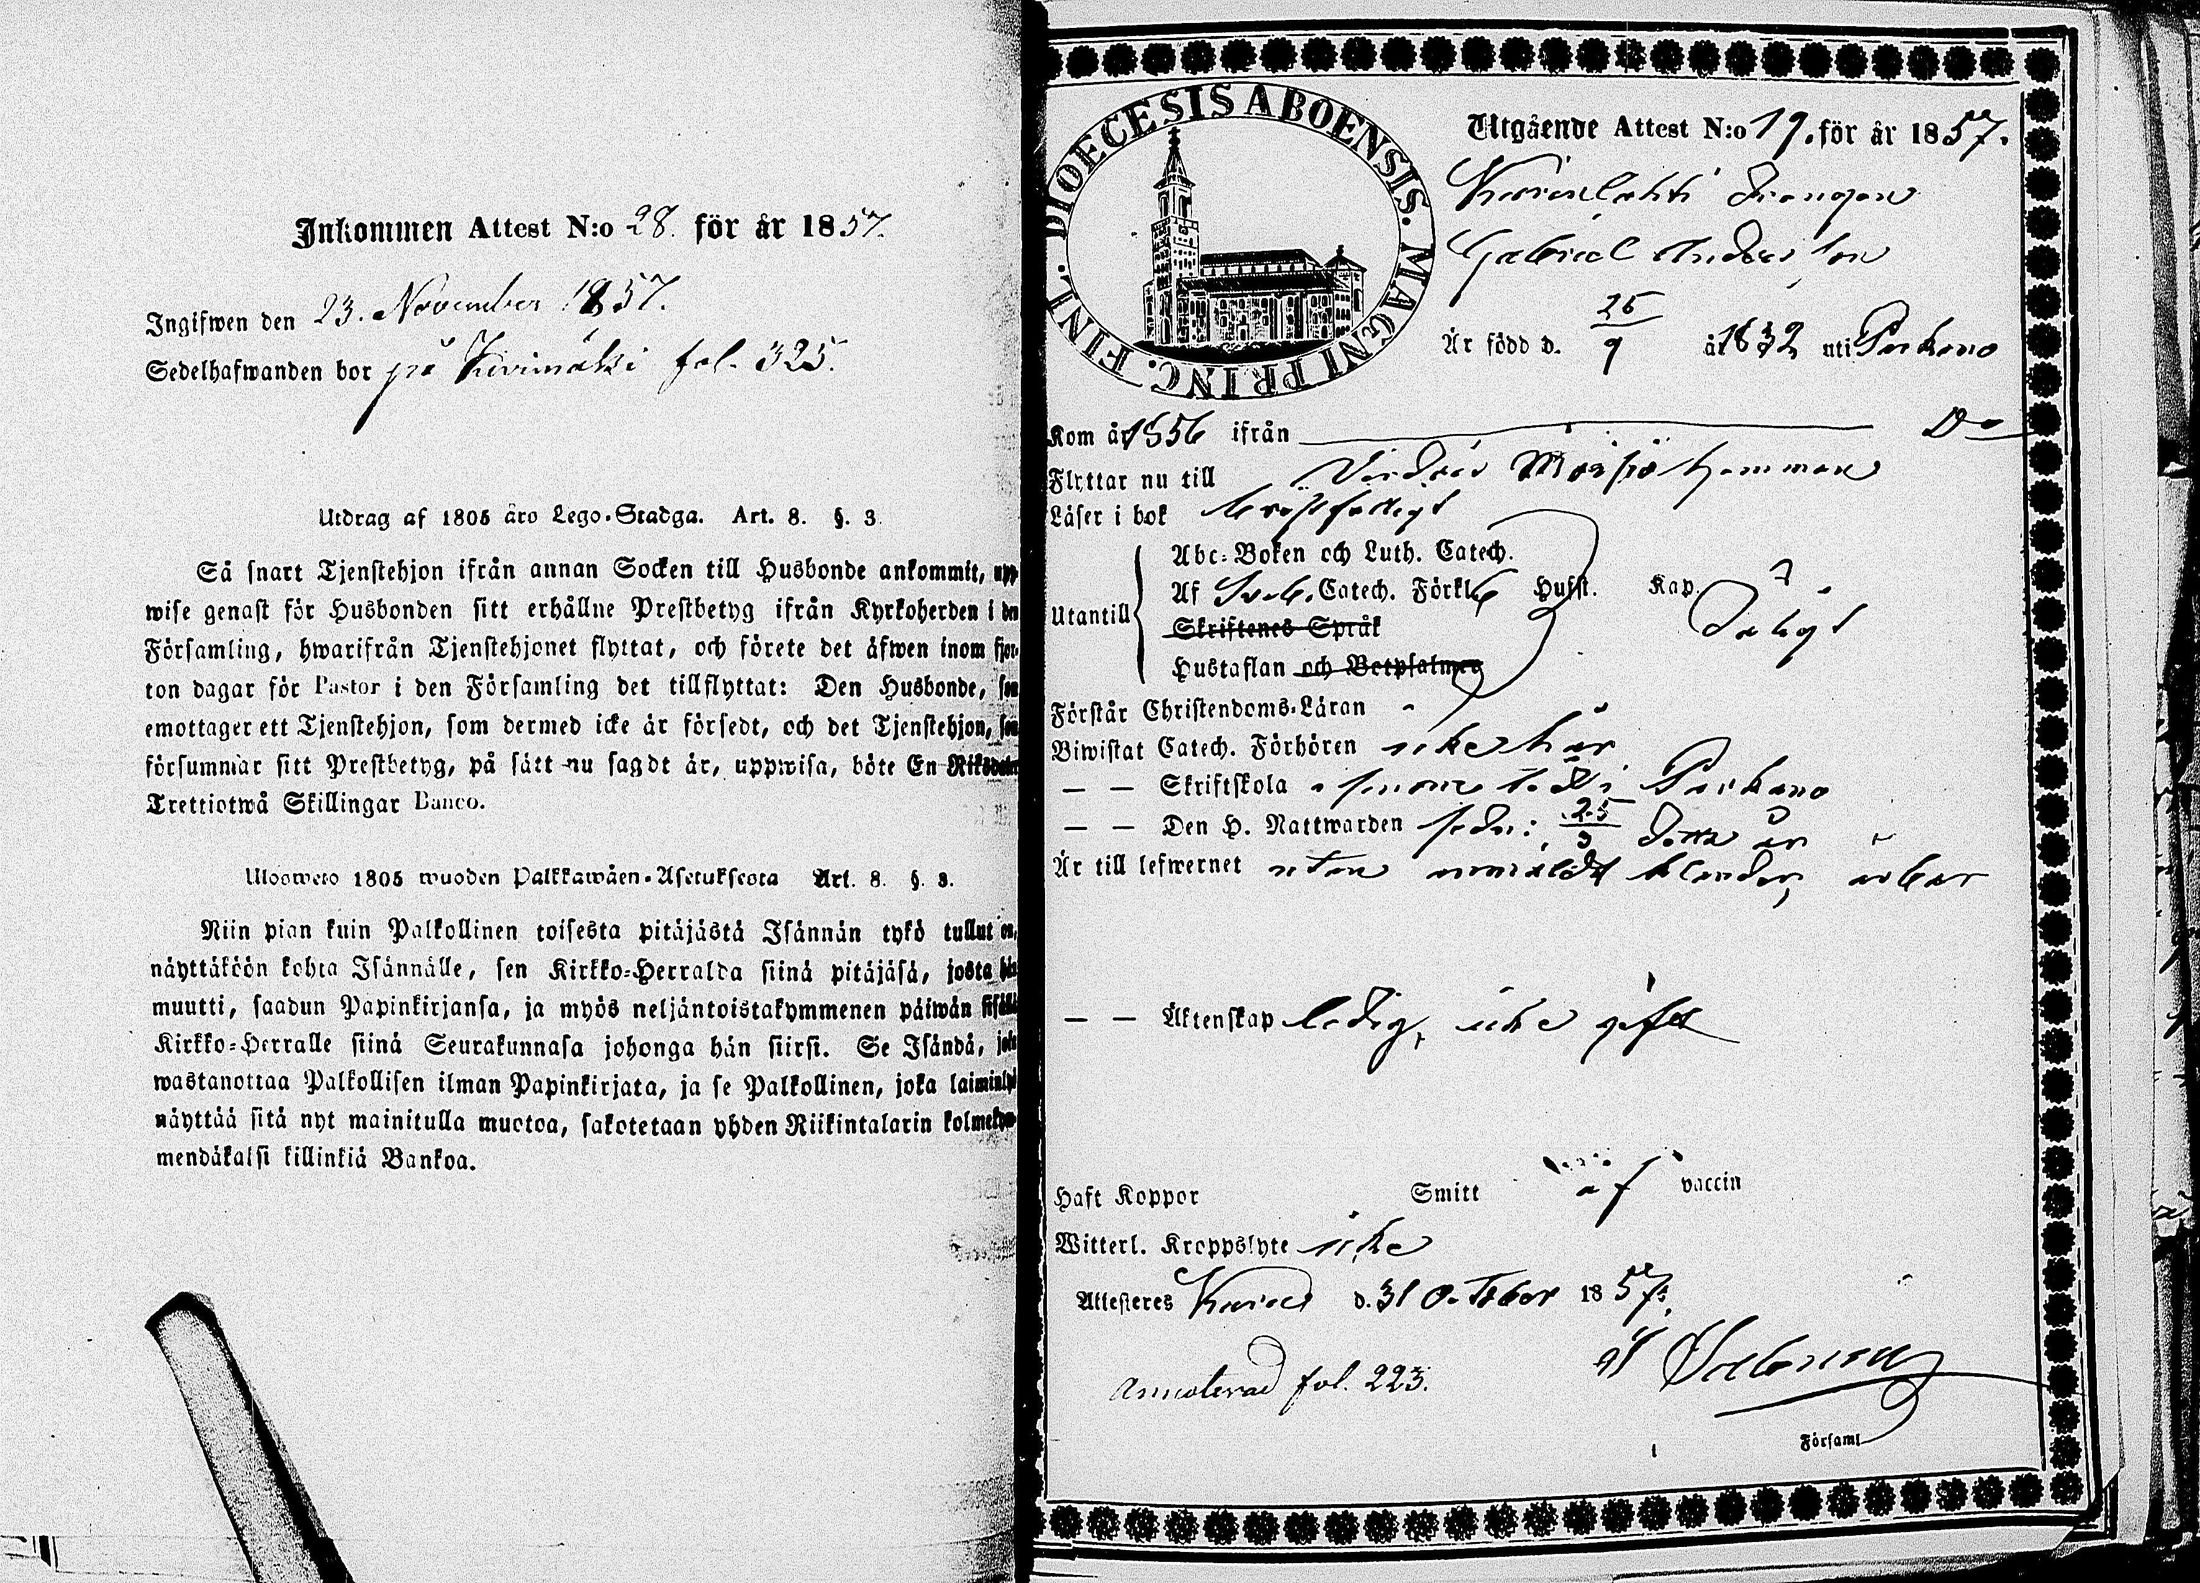 Inkommen Attest N:o 28. för år 1857.
Ingifwen den 23. November 1857.
Sedelhafwanden bor på Kivimäki fol. 325.
Utdrag af 1805 års Lego-Stadga. Art. 8. §. 3.
Så snart Tjenstehjon ifrån annan Socken till Husbonde ankommit, upp-
wise genast för Husbonden sitt erhållne Prestbetyg ifrån Kyrkoherden i den
Församling, hwarifrån Tjenstehjonet flyttat, och förete det äfwen inom fjor-
ton dagar för Pastor i den Församling det tillflyttat: Den Husbonde, som
emottager ett Tjenstehjon, som dermed icke är försedt, och det Tjenstehjon, som
försummar sitt Prestbetyg, på sätt nu sagdt är, uppwisa, böte En Riksdaler
Trettiotwå Skillingar Banco.
Ulosweto 1805 wuoden Palkkawäen-Asetuksesta Art. 8. §. 3.
Niin pian kuin Palkollinen toisesta pitäjästä Isännän tykö tullut on,
näyttäköön kohta Isännälle, sen Kirkko-Herralda siinä pitäjäsä, josta hän
muutti, saadun Papinkirjansa, ja myös neljäntoistakymmenen päiwän sisällä
Kirkko-Herralle siinä Seurakunnasa johonga hän siirsi. Se Isändä, joka
wastanottaa Palkollisen ilman Papinkirjata, ja se Palkollinen, joka laiminlyö
näyttää sitä nyt mainitulla muotoa, sakotetaan yhden Riikintalarin kolmekym-
mendäkaksi killinkiä Bankoa.
DIOECESIS ABOENSIS. MAGNI PRINC. FINL.
Utgående Attest N:o 19. för år 1857.
Drängen
Gabriel Andersson
Är född d. 25/9 år 1832 uti Parkano
Kom år 1856 ifrån Do
Flyttar nu till Virdois
Läser i bok
Utantill
Abc-Boken och Luth. Catech.
Af Sveb. Catech. Förkl. Husst. Kap.
Skriftenes Språk
Hustaflan och Botpsalmer
Förstår Christendoms-Läran
Biwistat Catech. Förhören icke här
— — Skriftskola Parkano
— — Den H. Nattwarden sedn: 25/3 detta år
Är till lefwernet utan anmäldt klander, ärbar
— — Äktenskap ledig, icke gift
Haft Koppor Smitt af vaccin
Witterl. Kroppslyte icke
Attesteres d. 31 October 1857.
Annoterad fol. 223.
Församl